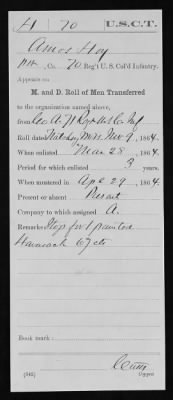 H 70 U.S.C.T.
Amos Hoy
Pvt., Co. 70 Reg't U. S. Col'd Infantry.
Appears on
M. and D. Roll of Men Transferred
to the organization named above,
from Co. A. 71
Roll dated Natchez, Miss. Nov 9, 1864.
When enlisted Mar 28, 1864.
Period for which enlisted 3 years.
When mustered in Apr 29, 1864.
Present or absent Present
Company to which assigned A.
Remarks: Stop for 1 painted
Haversack 67 cts
Book mark:
(343) Copyist.